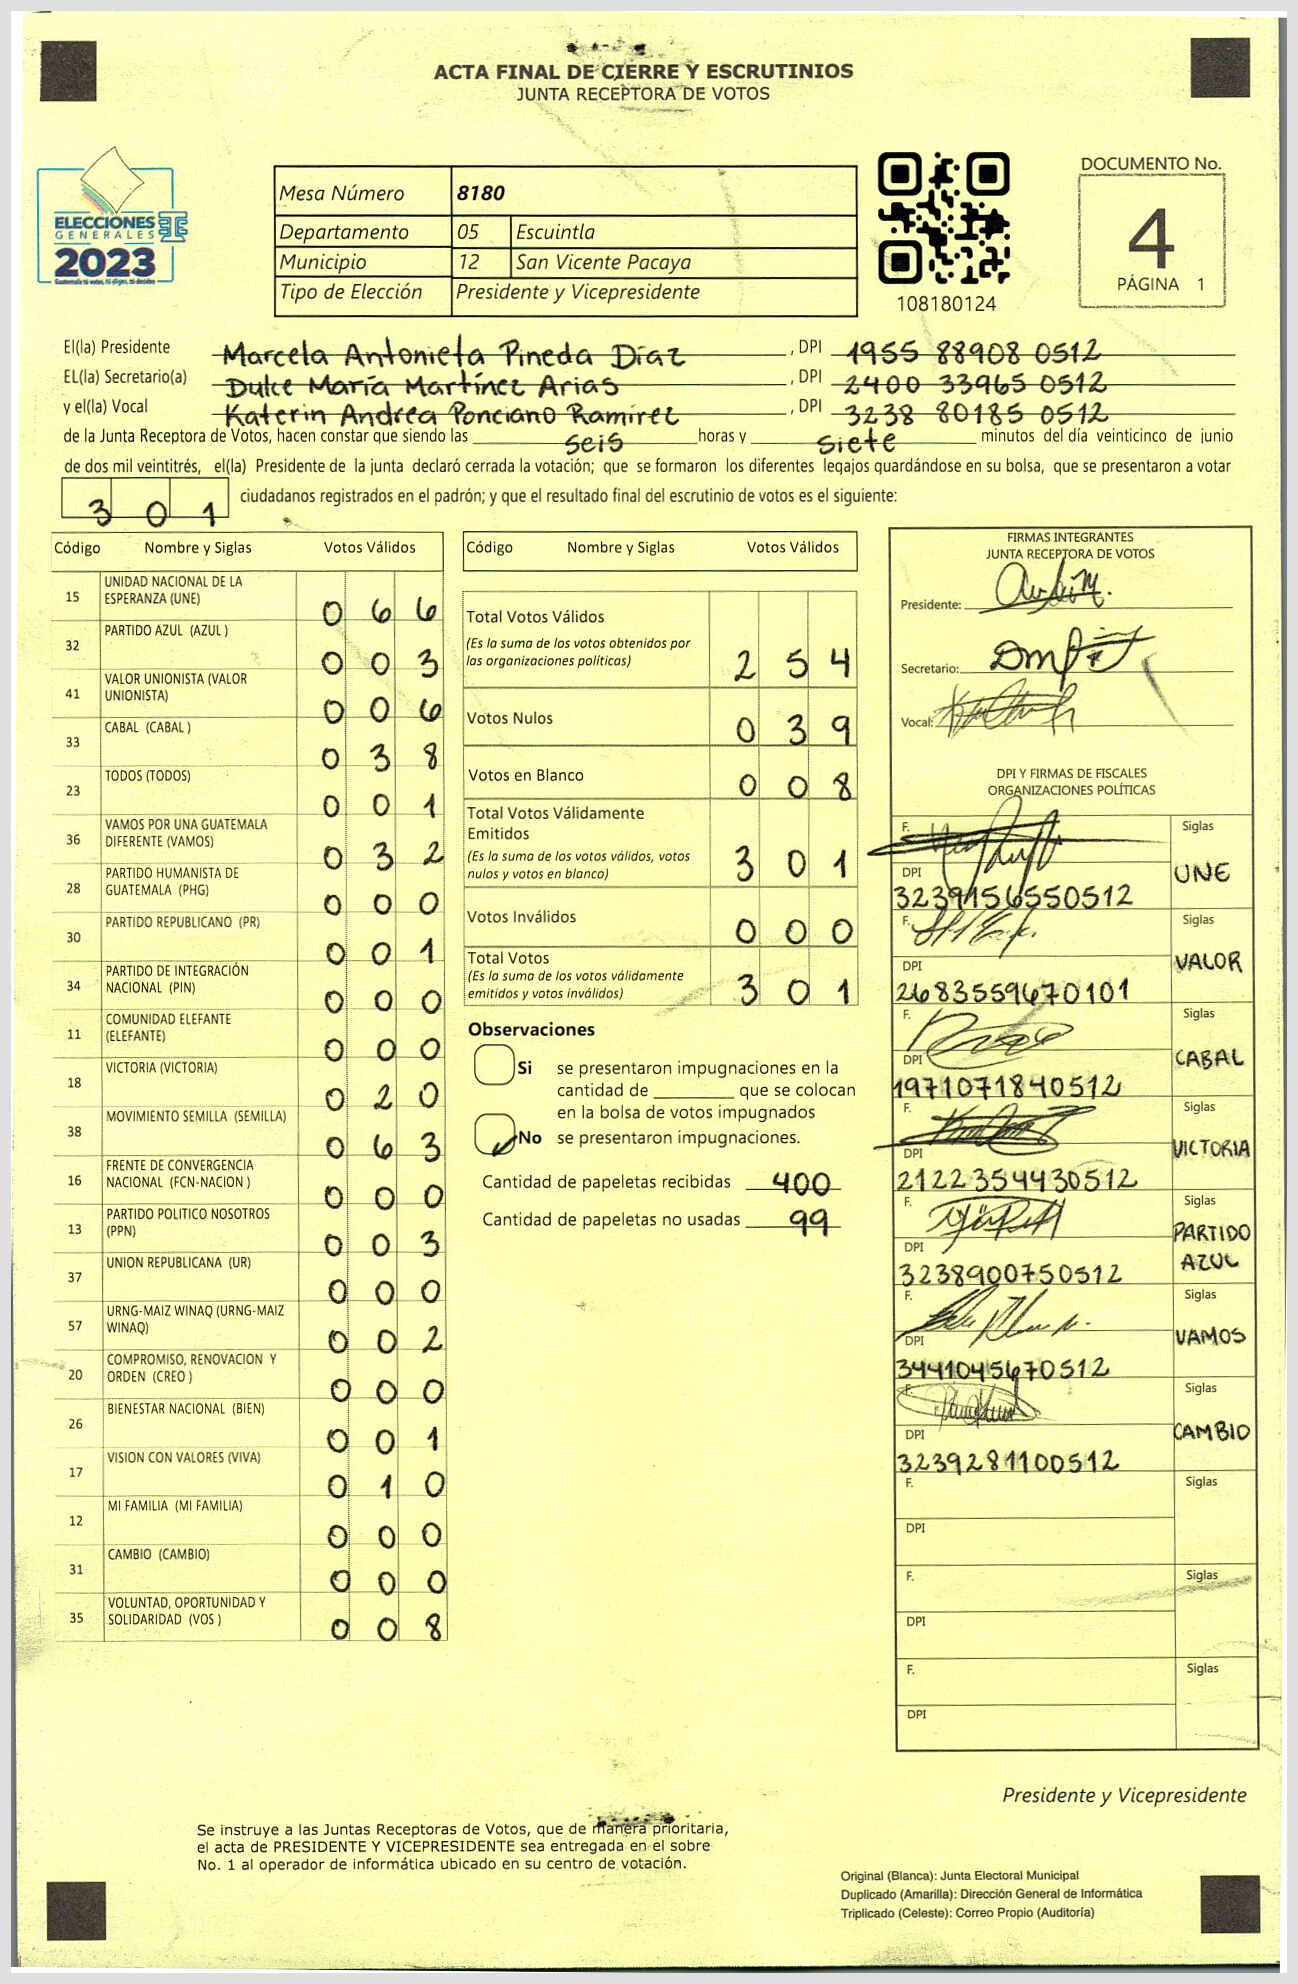 ACTA FINAL DE CIERRE Y ESCRUTINIOS
JUNTA RECEPTORA DE VOTOS
ELECCIONES
GENERALES
2023
Guatemala tú votas, tú eliges, tú decides
Mesa Número 8180
Departamento 05 Escuintla
Municipio 12 San Vicente Pacaya
Tipo de Elección Presidente y Vicepresidente
108180124
DOCUMENTO No.
4
PÁGINA 1
El(la) Presidente Marcela Antonieta Pineda Díaz , DPI 1955 88908 0512
EL(la) Secretario(a) Dulce María Martínez Arias , DPI 2400 33965 0512
y el(la) Vocal Katerin Andrea Ponciano Ramírez , DPI 3238 80185 0512
de la Junta Receptora de Votos, hacen constar que siendo las seis horas y siete minutos del día veinticinco de junio
de dos mil veintitrés, el(la) Presidente de la junta declaró cerrada la votación; que se formaron los diferentes legajos guardándose en su bolsa, que se presentaron a votar
301 ciudadanos registrados en el padrón; y que el resultado final del escrutinio de votos es el siguiente:
Código Nombre y Siglas Votos Válidos
15 UNIDAD NACIONAL DE LA ESPERANZA (UNE) 066
32 PARTIDO AZUL (AZUL ) 003
41 VALOR UNIONISTA (VALOR UNIONISTA) 006
33 CABAL (CABAL ) 038
23 TODOS (TODOS) 001
36 VAMOS POR UNA GUATEMALA DIFERENTE (VAMOS) 032
28 PARTIDO HUMANISTA DE GUATEMALA (PHG) 000
30 PARTIDO REPUBLICANO (PR) 001
34 PARTIDO DE INTEGRACIÓN NACIONAL (PIN) 000
11 COMUNIDAD ELEFANTE (ELEFANTE) 000
18 VICTORIA (VICTORIA) 020
38 MOVIMIENTO SEMILLA (SEMILLA) 063
16 FRENTE DE CONVERGENCIA NACIONAL (FCN-NACION ) 000
13 PARTIDO POLITICO NOSOTROS (PPN) 003
37 UNION REPUBLICANA (UR) 000
57 URNG-MAIZ WINAQ (URNG-MAIZ WINAQ) 002
20 COMPROMISO, RENOVACION Y ORDEN (CREO ) 000
26 BIENESTAR NACIONAL (BIEN) 001
17 VISION CON VALORES (VIVA) 010
12 MI FAMILIA (MI FAMILIA) 000
31 CAMBIO (CAMBIO) 000
35 VOLUNTAD, OPORTUNIDAD Y SOLIDARIDAD (VOS ) 008
Código Nombre y Siglas Votos Válidos
Total Votos Válidos
(Es la suma de los votos obtenidos por
las organizaciones políticas) 254
Votos Nulos 039
Votos en Blanco 008
Total Votos Válidamente
Emitidos
(Es la suma de los votos válidos, votos
nulos y votos en blanco) 301
Votos Inválidos 000
Total Votos
(Es la suma de los votos válidamente
emitidos y votos inválidos) 301
Observaciones
Si se presentaron impugnaciones en la
cantidad de ________ que se colocan
en la bolsa de votos impugnados
No se presentaron impugnaciones.
Cantidad de papeletas recibidas 400
Cantidad de papeletas no usadas 99
FIRMAS INTEGRANTES
JUNTA RECEPTORA DE VOTOS
Presidente:
Secretario:
Vocal:
DPI Y FIRMAS DE FISCALES
ORGANIZACIONES POLÍTICAS
F. Siglas
DPI UNE
3239156550512
F. Siglas
DPI VALOR
2683559670101
F. Siglas
DPI CABAL
1971071840512
F. Siglas
DPI VICTORIA
2122354430512
F. Siglas
DPI PARTIDO AZUL
3238900750512
F. Siglas
DPI VAMOS
3441045670512
F. Siglas
DPI CAMBIO
3239281100512
F. Siglas
DPI
F. Siglas
DPI
F. Siglas
DPI
Presidente y Vicepresidente
Se instruye a las Juntas Receptoras de Votos, que de manera prioritaria,
el acta de PRESIDENTE Y VICEPRESIDENTE sea entregada en el sobre
No. 1 al operador de informática ubicado en su centro de votación.
Original (Blanca): Junta Electoral Municipal
Duplicado (Amarilla): Dirección General de Informática
Triplicado (Celeste): Correo Propio (Auditoría)